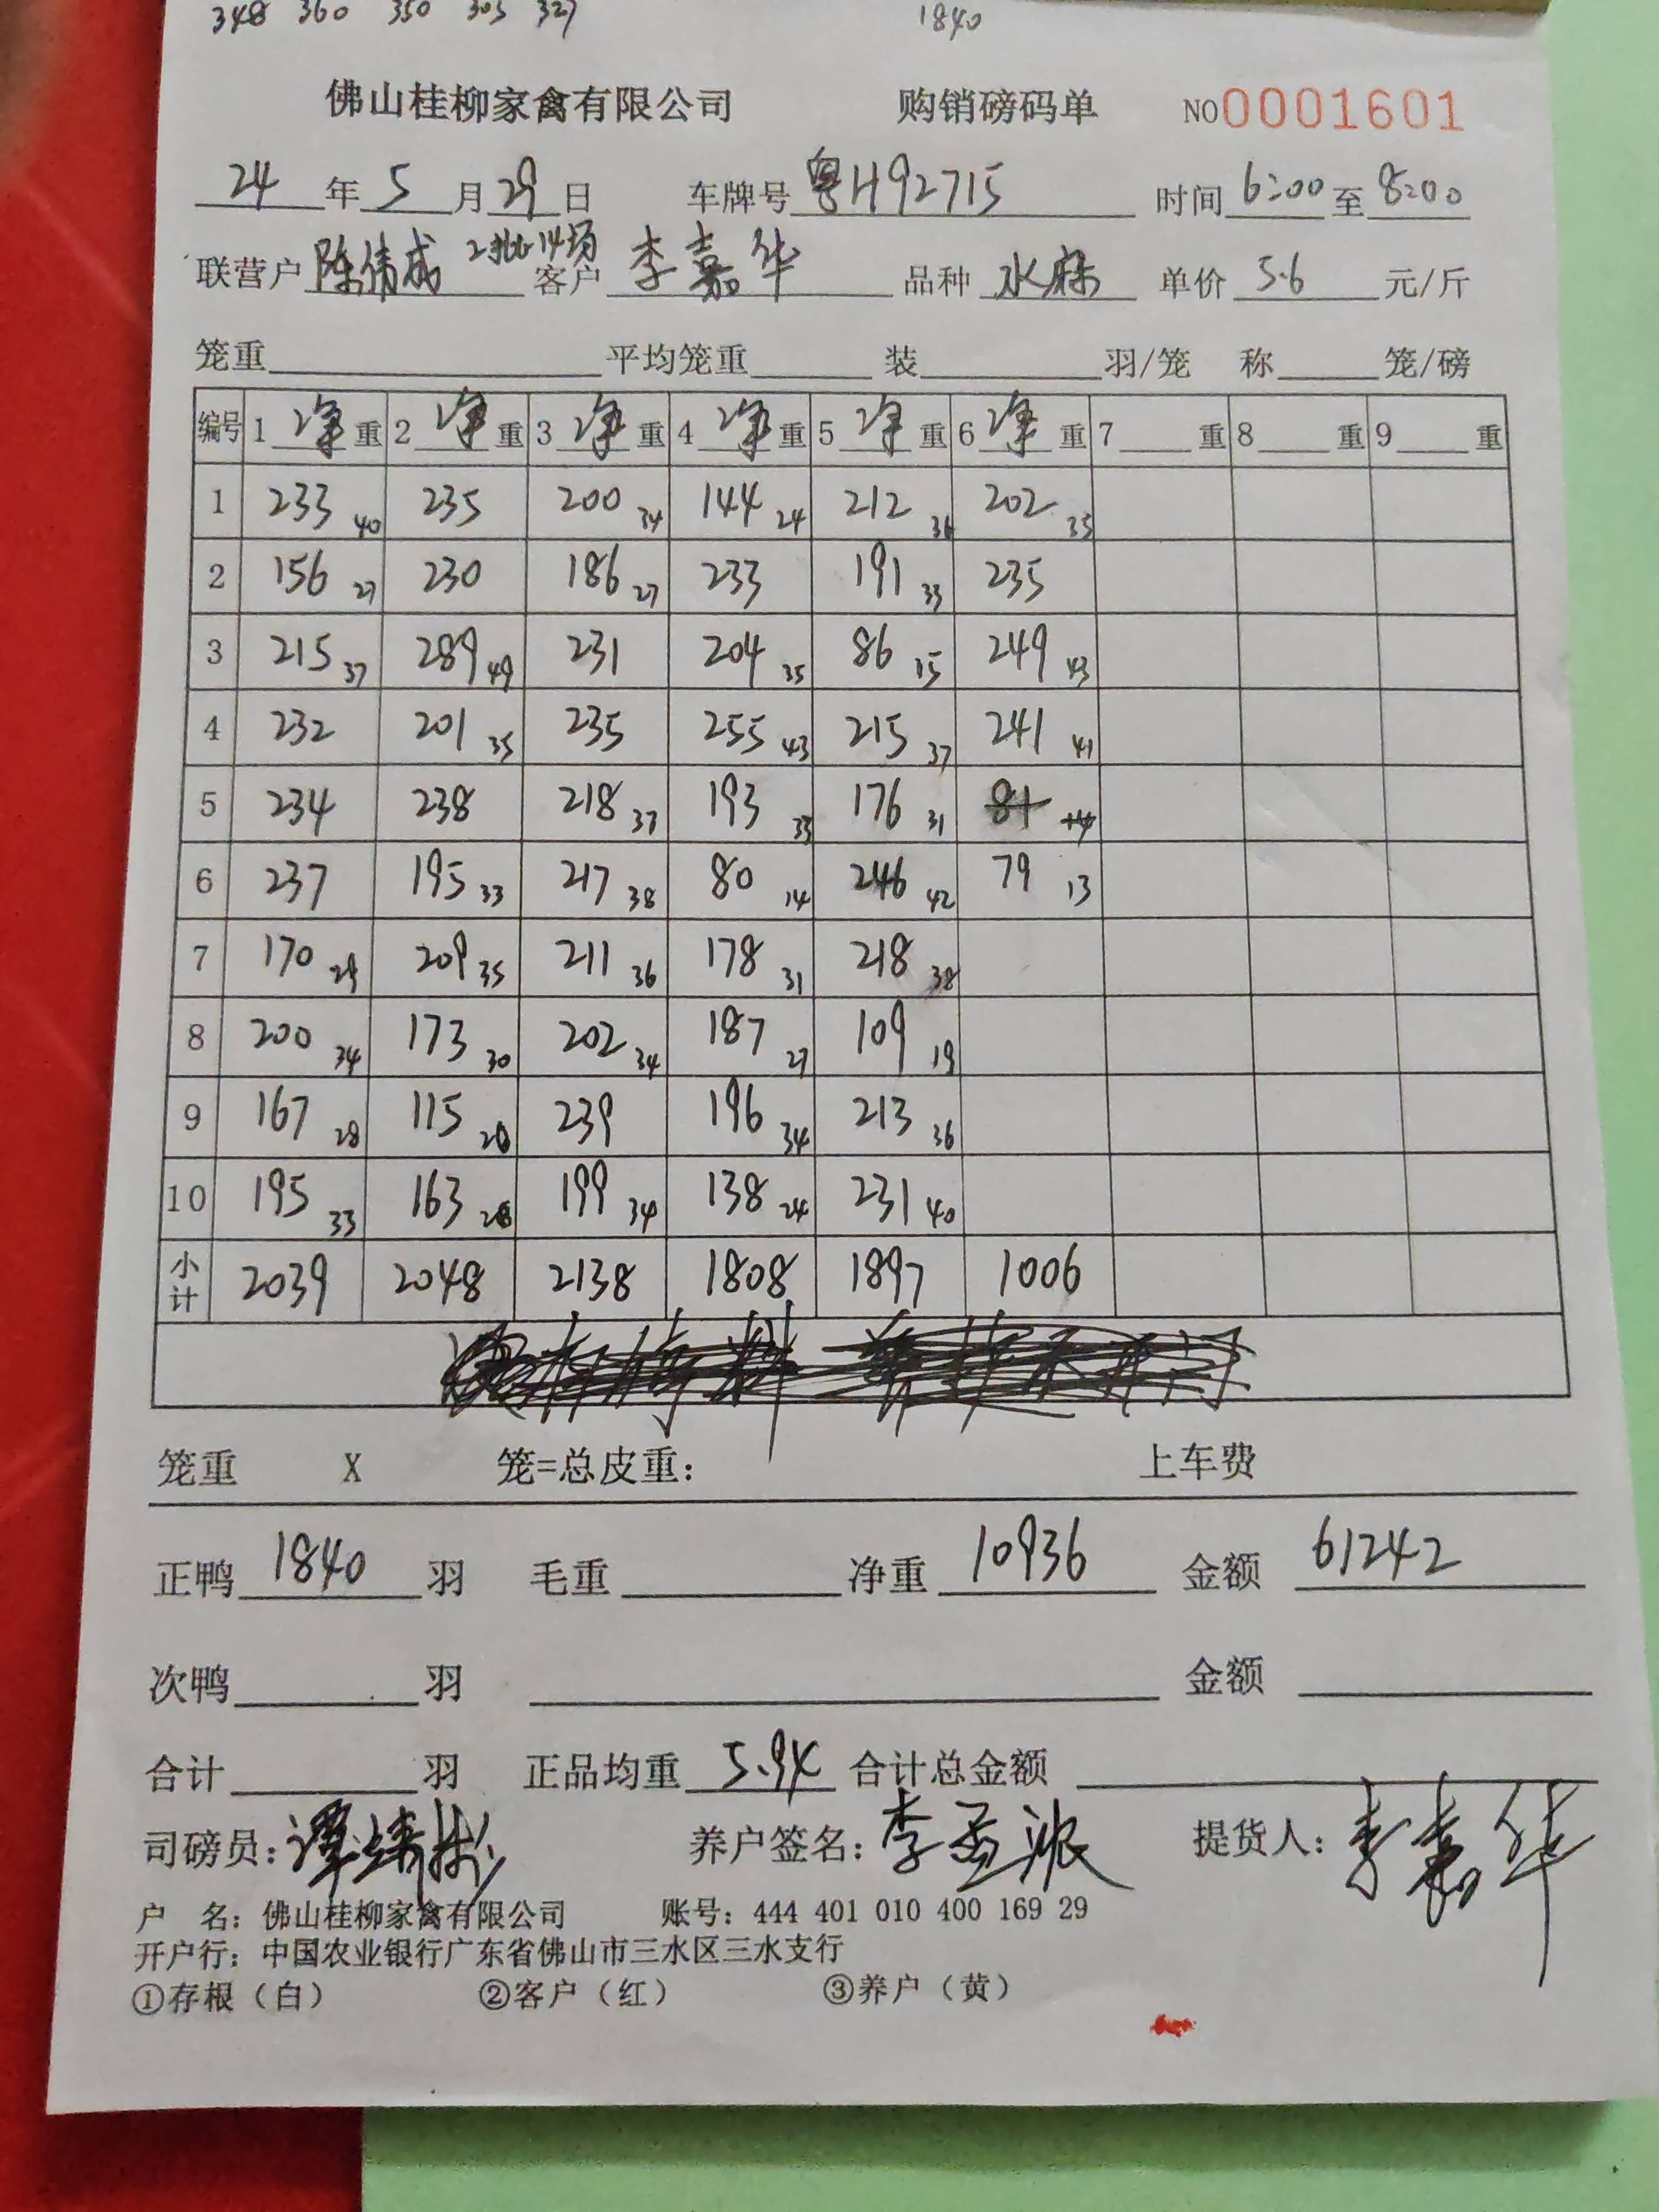 348 360 350 305 327 1840
佛山桂柳家禽有限公司 购销磅码单 NO0001601
24年5月29日 车牌号粤H92715 时间6:00至8:00
联营户陈伟成 2批14场 客户李嘉华 品种水麻 单价5.6元/斤
笼重 平均笼重 装 羽/笼 称 笼/磅
编号 1净重 2净重 3净重 4净重 5净重 6净重 7 重 8 重 9 重
1 233 40 235 200 34 144 24 212 36 202 35
2 156 27 230 186 27 233 191 33 235
3 215 37 289 49 231 204 35 86 15 249 43
4 232 201 35 235 255 43 215 37 241 41
5 234 238 218 37 193 33 176 31 81 14
6 237 195 33 217 38 80 14 246 42 79 13
7 170 29 209 35 211 36 178 31 218 38
8 200 34 173 30 202 34 187 27 109 19
9 167 28 115 20 239 196 34 213 36
10 195 33 163 28 199 34 138 24 231 40
小计 2039 2048 2138 1808 1897 1006
笼重 X 笼=总皮重: 上车费
正鸭1840羽 毛重 净重10936 金额61242
次鸭 羽 金额
合计 羽 正品均重5.94 合计总金额
司磅员: 养户签名: 李 提货人: 李嘉华
户 名: 佛山桂柳家禽有限公司 账号: 444 401 010 400 169 29
开户行: 中国农业银行广东省佛山市三水区三水支行
①存根(白) ②客户(红) ③养户(黄)